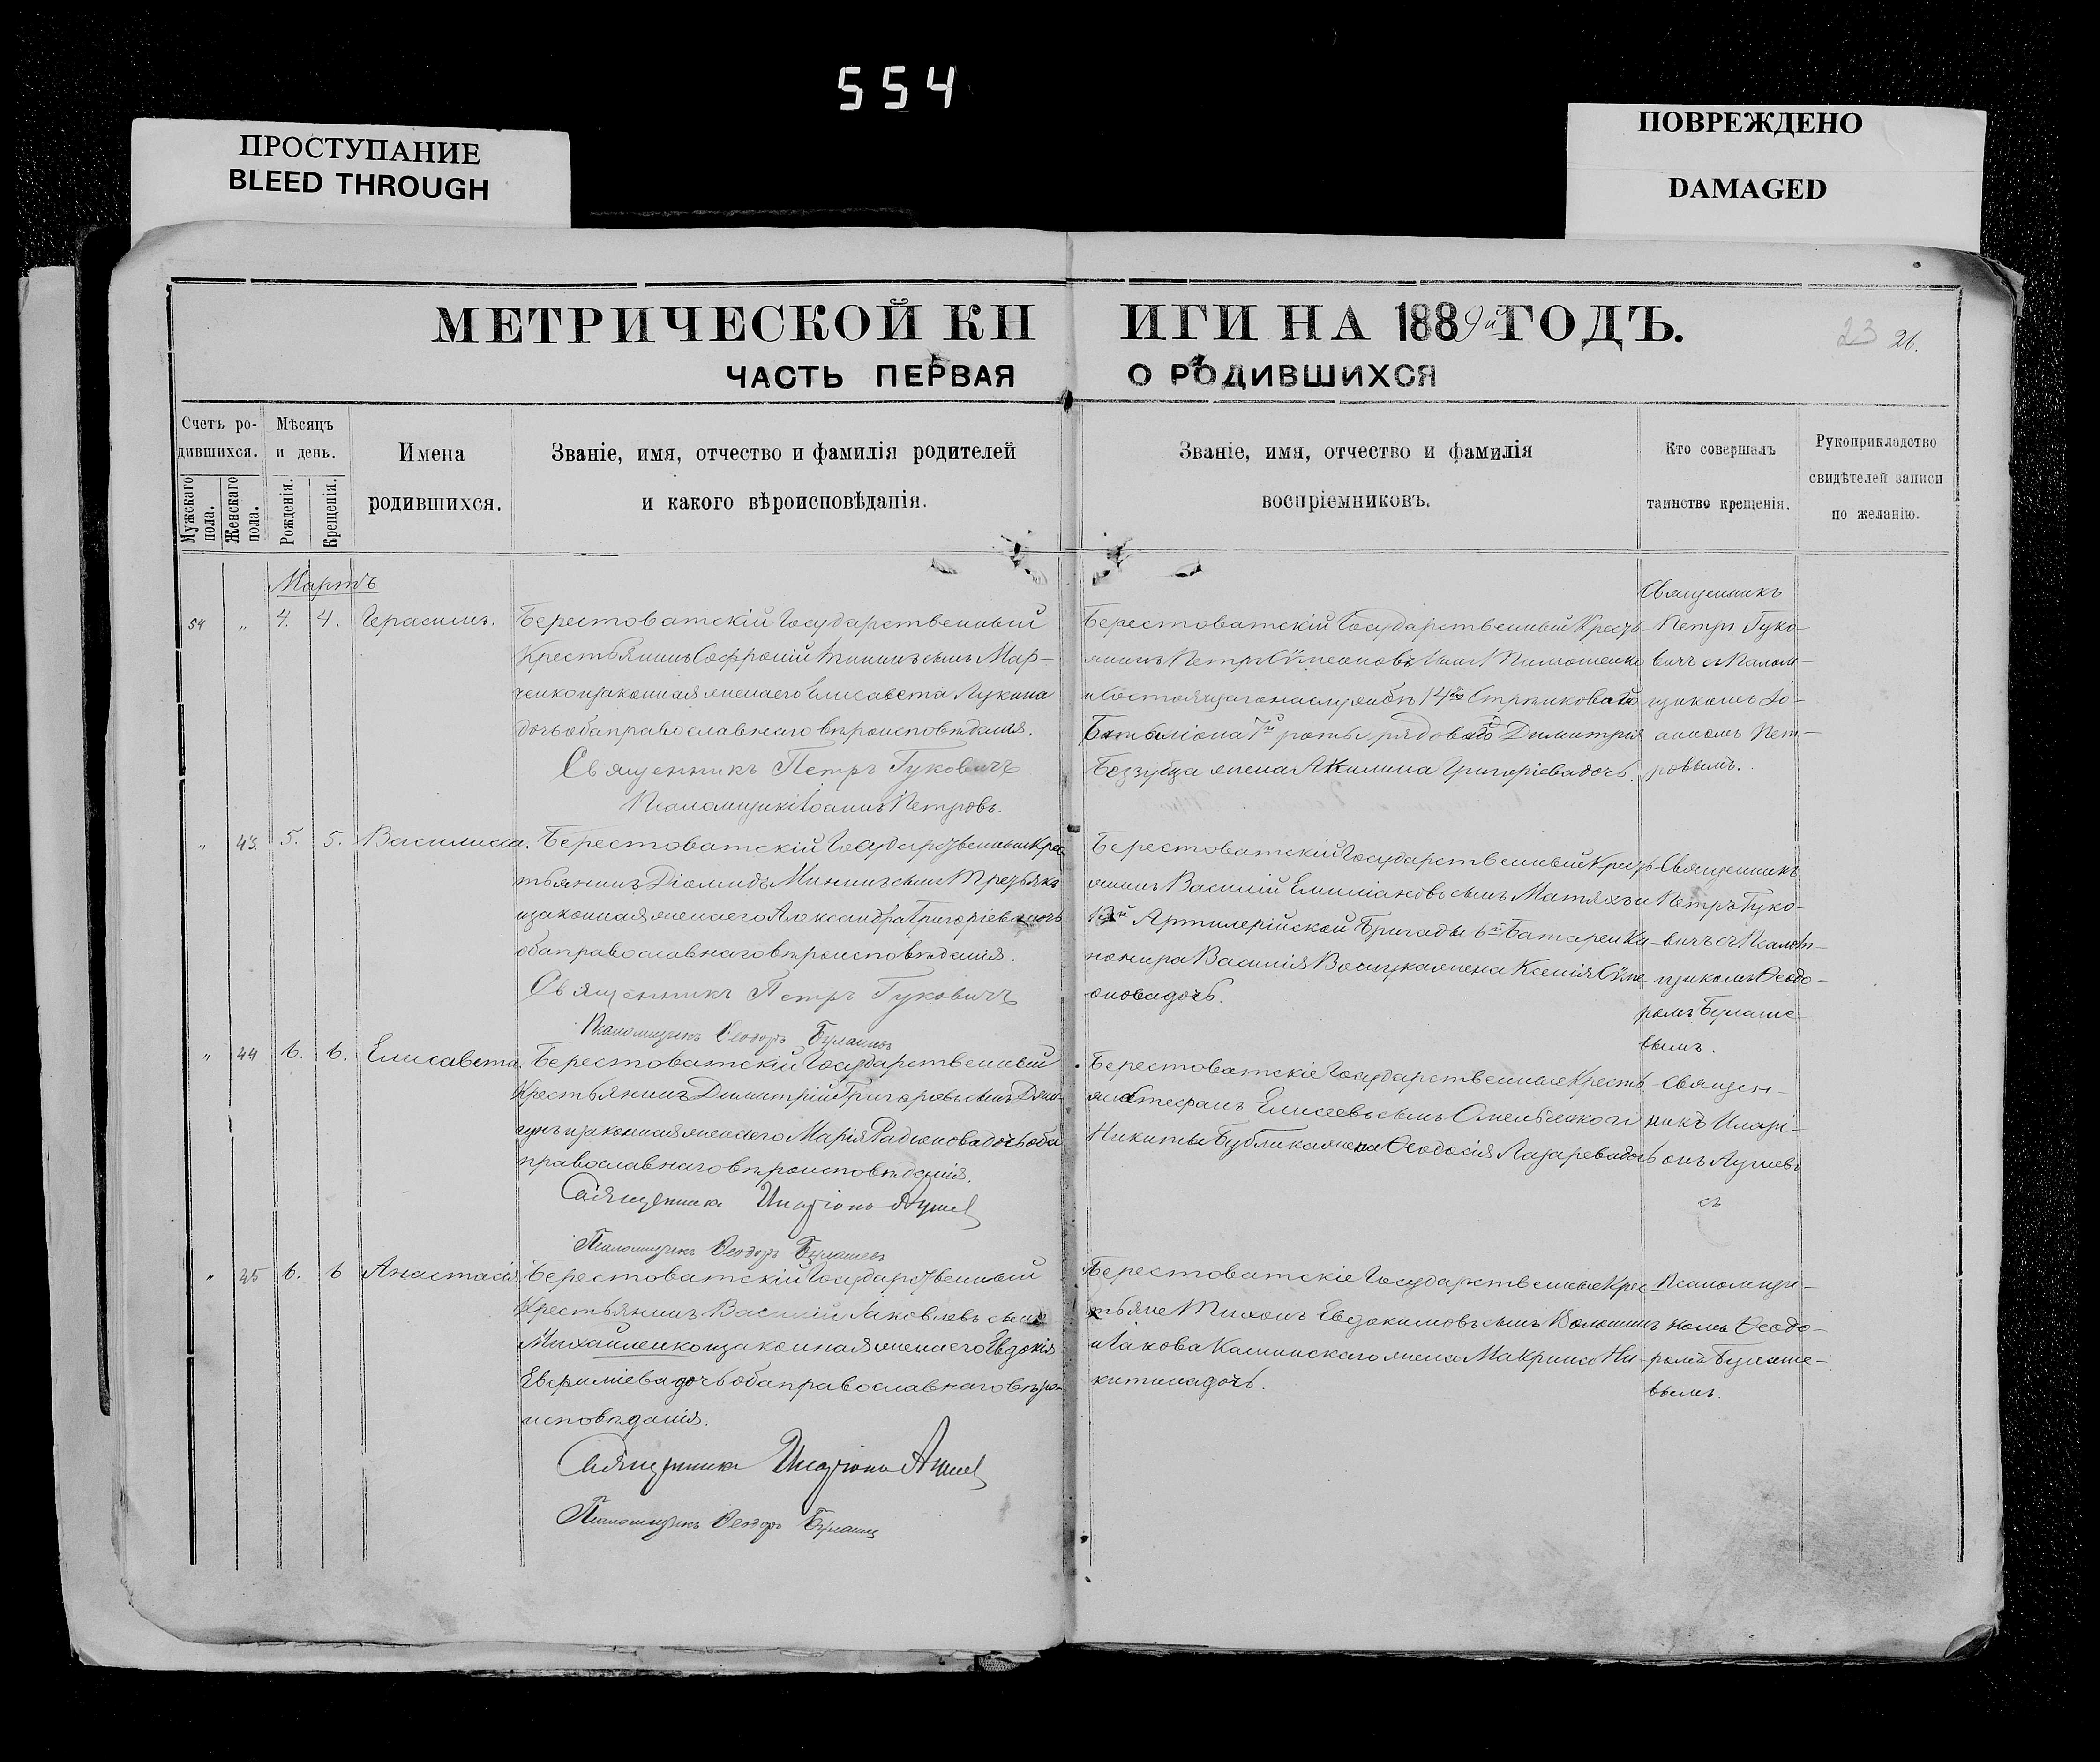 554
ПРОСТУПАНИЕ
BLEED THROUGH
ПОВРЕЖДЕНО
DAMAGED
МЕТРИЧЕСКОЙ КНИГИ НА 1889й ГОДЪ.
23 26.
ЧАСТЬ ПЕРВАЯ О РОДИВШИХСЯ
Счетъ ро-
дившихся.
Мужскаго пола.
Женскаго пола.
Мѣсяцъ
и день.
Рожденія.
Крещенія.
Имена
родившихся.
Званіе, имя, отчество и фамилія родителей
и какого вѣроисповѣданія.
Званіе, имя, отчество и фамилія
воспріемниковъ.
Кто совершалъ
таинство крещенія.
Рукоприкладство
свидѣтелей записи
по желанію.
Мартъ
54 „ 4. 4. Герасимъ.
Берестоватскій Государственный
Крестьянинъ Софроній сынъ Мар-
ченко и законная жена его Елисавета Лукина
дочь оба православнаго вѣроисповѣданія.
Священникъ Петръ Гуковичъ
Псаломщикъ Іоаннъ Петровъ.
Берестоватскій Государственный Кресть-
янинъ Петръ Сѵмеоновъ сынъ Тимошенко
и состоящаго на службѣ 14го Стрѣлковаго
Баталіона 7й роты рядоваго Димитрія
Беззубца жена Акилина Григоріева дочь.
Священникъ
Петръ Гуко-
вичъ съ Псалом-
щикомъ Іо-
анномъ Пет-
ровымъ.
„ 43. 5. 5. Василисса.
Берестоватскій Государственный Крес-
тьянинъ Діомидъ Мининъ сынъ Третьякъ
и законная жена его Александра Григоріева дочь
оба православнаго вѣроисповѣданія.
Священникъ Петръ Гуковичъ
Псаломщикъ Ѳеодоръ Булашевъ
Берестоватскій Государственный Кресть-
янинъ Василій Емиліановъ сынъ Матяхъ и
Артилерійской Бригады 6й Батареи Ка-
нонира Василія жена Ксенія Сѵме-
онова дочь.
Священникъ
Петръ Гуко-
вичъ съ Псалом-
щикомъ Ѳеодо-
ромъ Булаше-
вымъ.
„ 44 6. 6. Елисавета.
Берестоватскій Государственный
Крестьянинъ Димитрій Григорьевъ сынъ
и законная жена его Марія Радіонова дочь оба
православнаго вѣроисповѣданія.
Священникъ Иларіонъ
Псаломщикъ Ѳеодоръ Булашевъ
Берестоватскіе Государственные Кресть-
яне Стефанъ Елисеевъ сынъ Омельченко и
Никиты Бублика жена Ѳеодосія Лазарева дочь
Священ-
никъ Илари-
онъ
съ
„ 45 6. 6 Анастасія.
Берестоватскій Государственный
Крестьянинъ Василій Іаковлевъ сынъ
Михайленко и законная жена его Евдокія
Евфиміева дочь оба православнаго вѣро-
исповѣданія.
Священникъ Иларіонъ
Псаломщикъ Ѳеодоръ Булашевъ
Берестоватскіе Государственные Крес-
тьяне Тихонъ Евдокимовъ сынъ Волошинъ
и Іакова Калинскаго жена Макрина Ни-
китина дочь.
Псаломщи-
комъ Ѳеодо-
ромъ Булаше-
вымъ.